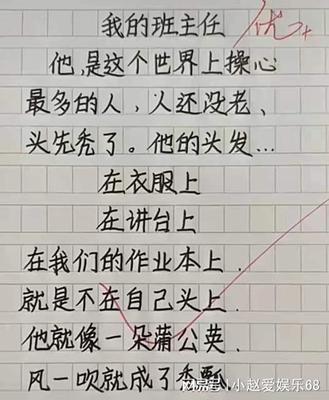 我的班主任 优+
他,是这个世界上操心
最多的人,人还没老、
头先秃了。他的头发...
在衣服上
在讲台上
在我们的作业本上.
就是不在自己头上.
他就像一朵蒲公英.
风一吹就成了秃瓢.
搜狐号@小赵爱娱乐68